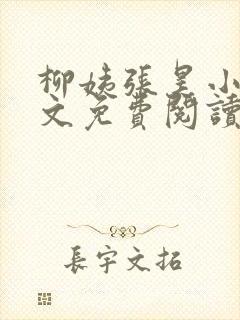 柳姨張昊小
文免費閱讀
長宇文拓